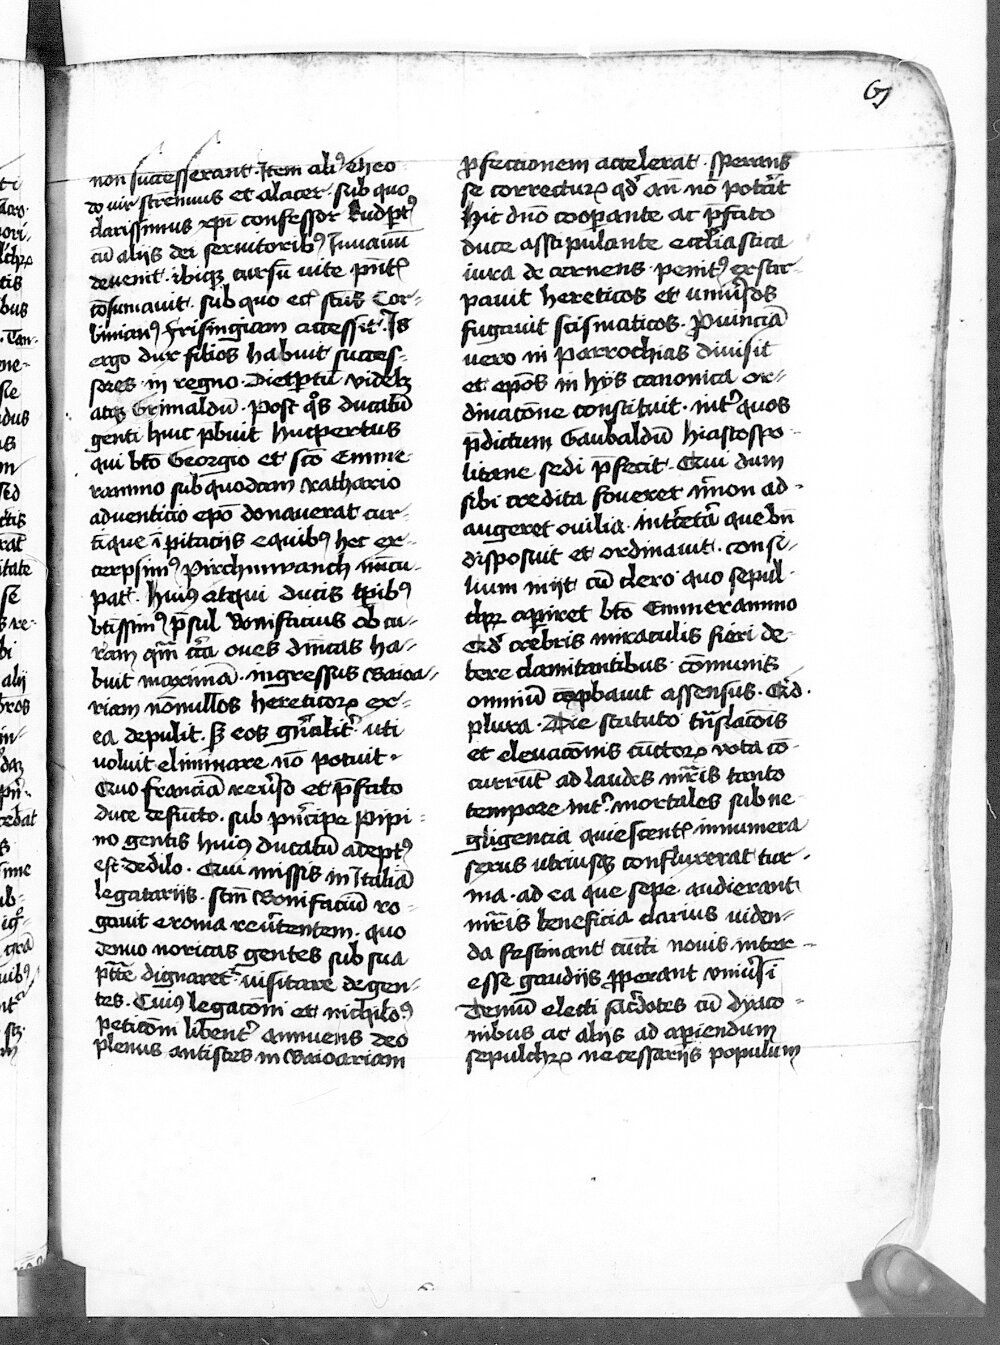 61
non successerant. Item aliꝰ theo
do vir strenuus et alacer. sub quo
clarissimus xp̄i confessor Rudꝑtꝰ
cū aliis dei seruitoribꝰ Iuuauū
deuenit. ibiqꝫ cursū uite pn̄tꝭ
cōsumauit. sub quo ecī sc̄us Cor-
binianꝰ frisingiam accessit. Is
ergo dux filios habuit succes-
sores in regno. Dietꝑtū videlꝫ
atqꝫ Grimaldū. Post qͦs ducatū
genti huic p̄buit hucpertus
qui bt̄o Georgio et sc̄o Emme
rammo sub quodam rathario
aduenticio ep̄o donauerat cur-
tēque ī pitaciis equibꝰ hec ex-
cerpsimꝰ pirchinwanch nūcu-
pat̄. huiꝰ atqui ducis tꝑibꝰ
bt̄issimꝰ p̄sul Bonifacius ob cu-
ram qm̄ cc̄a oues dn̄icas ha-
buit maximā. ingressus Baioa-
riam nōnullos hereticorꝝ ex-
ea depulit. sꝫ eos gn̄alit̾ uti
uoluit eliminare nō potuit.
Quo franciā reuẜo et p̄fato
duce defūcto. sub pn̄cipe pipi-
no gentis huiꝰ ducatū adeptꝰ
est Oedilo. Qui missis in Italiā
legatariis. scm̄ Bonifaciū ro-
gauit e roma reūtentem. quo
denuo noricas gentes sub sua
ptāte dignaret̾ uisitare degen-
tes. Cuiꝰ legacōni et nichilōꝰ
peticōni libent̾ annuens deo
plenus antistes in Baioariam
ꝓfectionem accelerat. sperans
se correcturꝝ qd̾ an̄ nō pot̾at
Hic dn̄o cooꝑante ac p̄fato
duce assꝑtipulante eccl̄iastica
iura decernens penitꝰ exstir-
pauit hereticos et uniūsos
fugauit scismaticos. Ꝓuinciā
vero in parrochias diuisit
et ep̄os in hijs canonica or-
dinacōne constituit. int̾ quos
p̄dictum Gaubaldū hiastospo-
litane sedi p̄fecit. Qui dum
sibi credita foueret īmon ad-
augeret ouilia. int̾cet̾a que bn̄
disposuit et ordinauit. consi-
lium iniit cū clero quo sepul-
chꝝ aꝑiret bt̄o Emmerammo
Qd̾ crebris miraculis fieri de-
bere clamitantibus cōmunis
omniū cōꝓbauit assensus. Qid.
plura. Die statuto trn̄slacōis
et eleuacōnis cūctorꝝ vota cō-
currūt ad laudes mr̄is tanto
tempore int̾ mortales sub ne-
gligencia quiescentꝭ innumera
sexus utriusqꝫ confluxerat tur-
ma. ad ea que sepe audierant
mr̄is beneficia clarius viden-
da festinant cūcti nouis inter-
esse gaudijs ꝓꝑerant vniūsi
Demū electi sac̾dotes cū dyaco-
nibus ac alijs ad aꝑiendum
sepulchꝝ necessariis populum